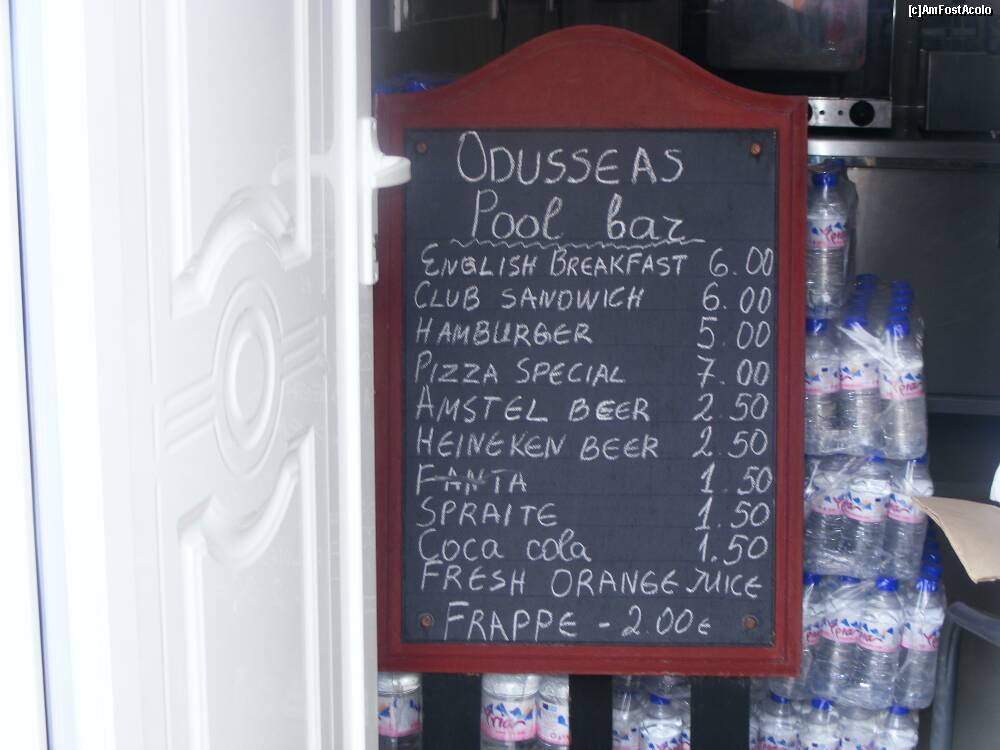 [c]AmFostAcolo
ODUSSEAS
Pool bar
ENGLISH BREAKFAST 6.00
CLUB SANDWICH 6.00
HAMBURGER 5.00
PIZZA SPECIAL 7.00
AMSTEL BEER 2.50
HEINEKEN BEER 2.50
FANTA 1.50
SPRAITE 1.50
Coca cola 1.50
FRESH ORANGE JUICE
FRAPPE - 2.00€